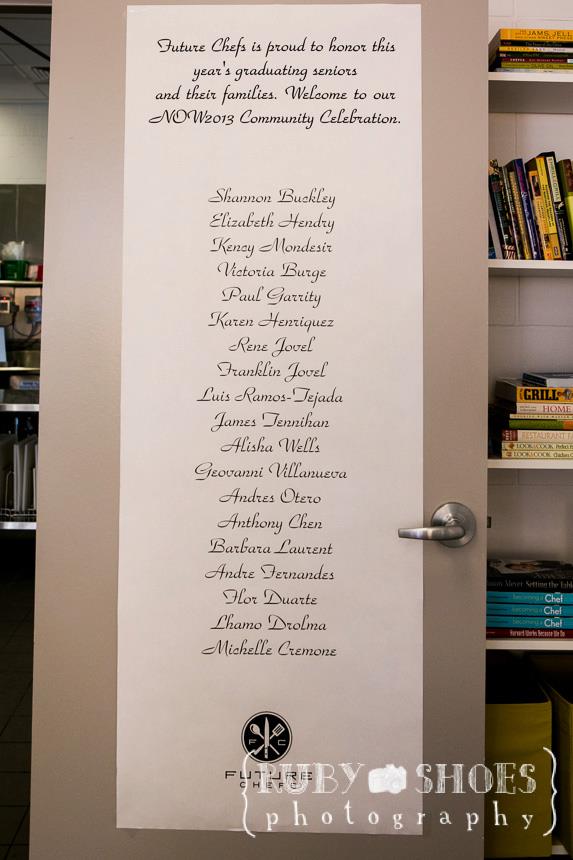 Future Chefs is proud to honor this
year's graduating seniors
and their families. Welcome to our
NOW2013 Community Celebration.
Shannon Buckley
Elizabeth Hendry
Kency Mondesir
Victoria Burge
Paul Garrity
Karen Henriquez
Rene Jovel
Franklin Jovel
Luis Ramos-Tejada
James Tennihan
Alisha Wells
Geovanni Villanueva
Andres Otero
Anthony Chen
Barbara Laurent
Andre Fernandes
Flor Duarte
Lhamo Drolma
Michelle Cremone
F C
FUTURE
CHEFS
RUBY SHOES
photography
JAMS, JELL
GRILL
HOME
RESTAURANT
LOOK&COOK
LOOK&COOK
Meyer Setting the Table
becoming a Chef
becoming a Chef
becoming a Chef
Harvard Works Because We Do